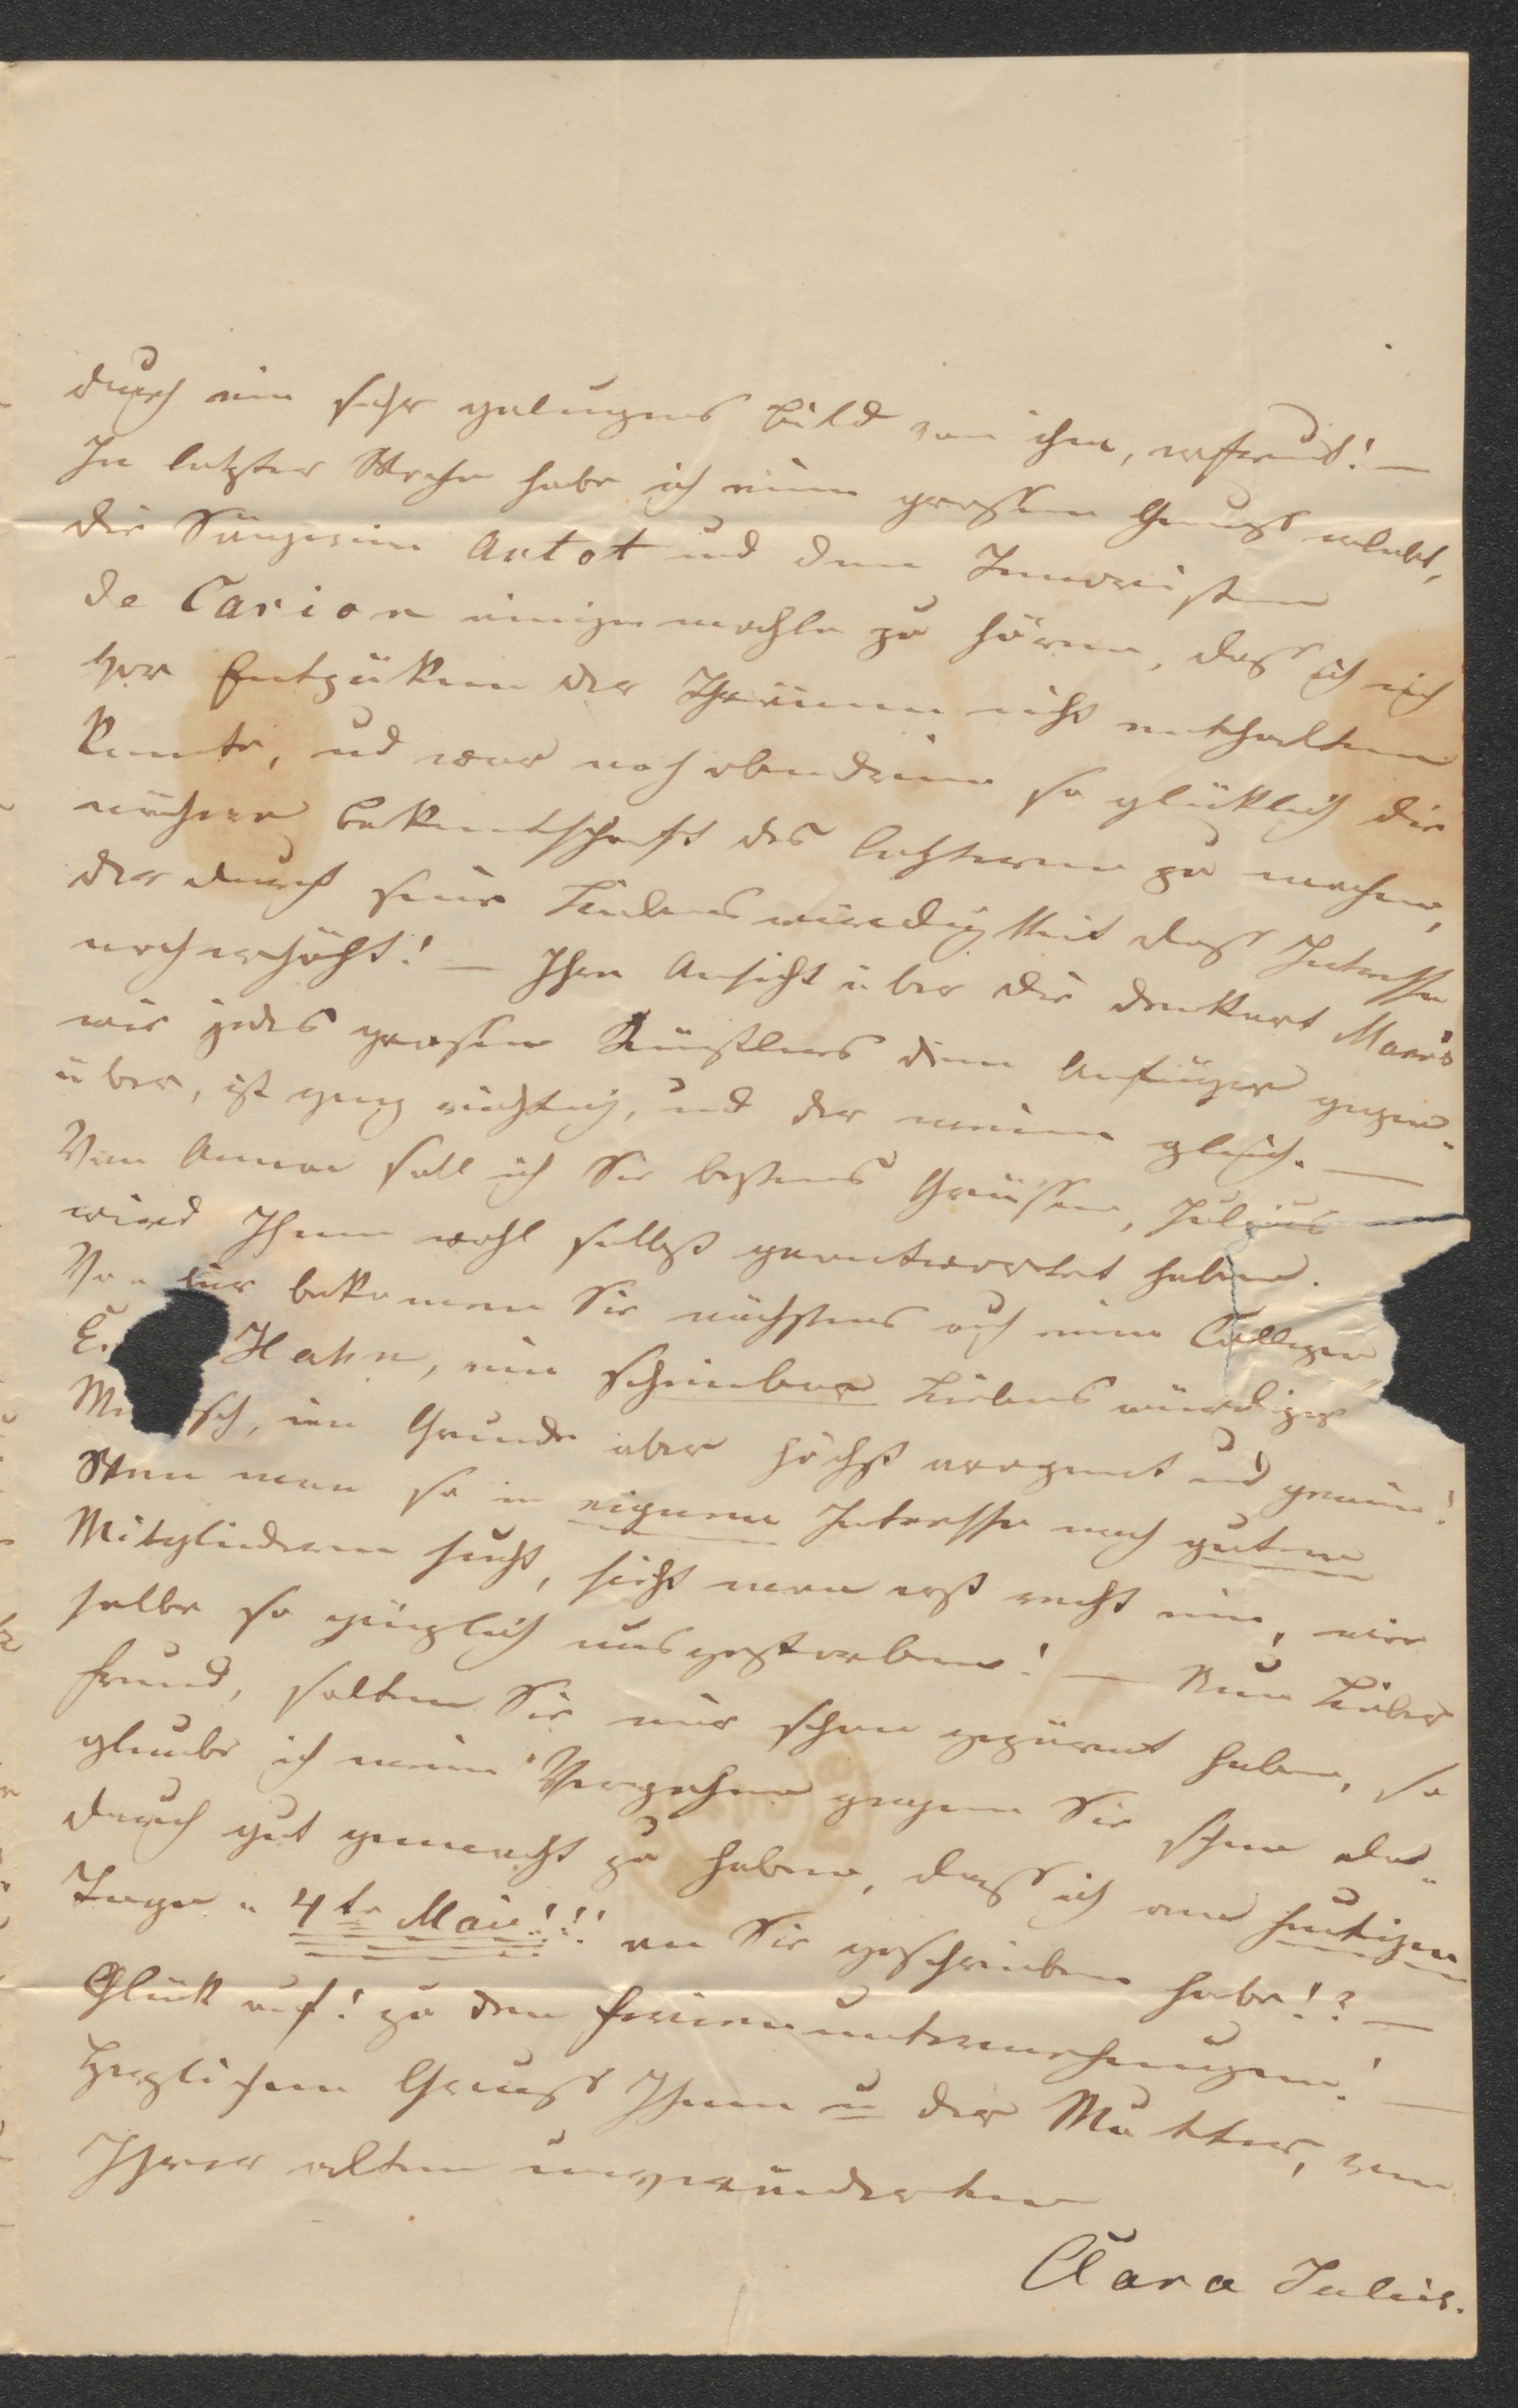 durch ein sehr gelungenes Bild von ihm, erfreut! —
In letzter Woche habe ich einen grossen Genuss erlebt,
die Sängerin Artot und den Tenoristen
de Carion einigemahle zu hören, dass ich mich
vor Entzüken der Thränen nicht enthalten
konnte, und war noch obendrein so glüklich die
nähere Bekanntschaft des letzteren zu machen,
der durch seine Liebenswürdigkeit dass Intresse
noch erhöht! — Ihre Ansicht über die Denkart Marr's
wie jedes grossen Künstlers dem Anfänger gegen"
über, ist ganz richtig, und der meinen gleich. —
Von Anna soll ich Sie bestens Grüssen, Julius
wird Ihnen wohl selbst geantwortet haben.
Von hier bekommen Sie nächstens auch einen Collegen"
Hahn, ein scheinbar Liebenswürdiger
sch, im Grunde aber höchst arogant und gemein!
Wenn man so in eignem Intresse nach guten
Mitgliedern sucht, sieht man erst recht ein, wie
selbe so gänzlich ausgestorben! — Nun Lieber
Freund, sollten Sie mir schon gezürnt haben, so
glaube ich mein Vergehen gegen Sie schon da"
durch gut gemacht zu haben, dass ich am heutigen
Tage " 4te Mai!!! an Sie geschrieben habe!? —
Glük auf! zu den Ferienunternehmungen! —
Herzlichen Gruss Ihnen u der Mutter, von
Ihrer alten unveränderten
Clara Julius.